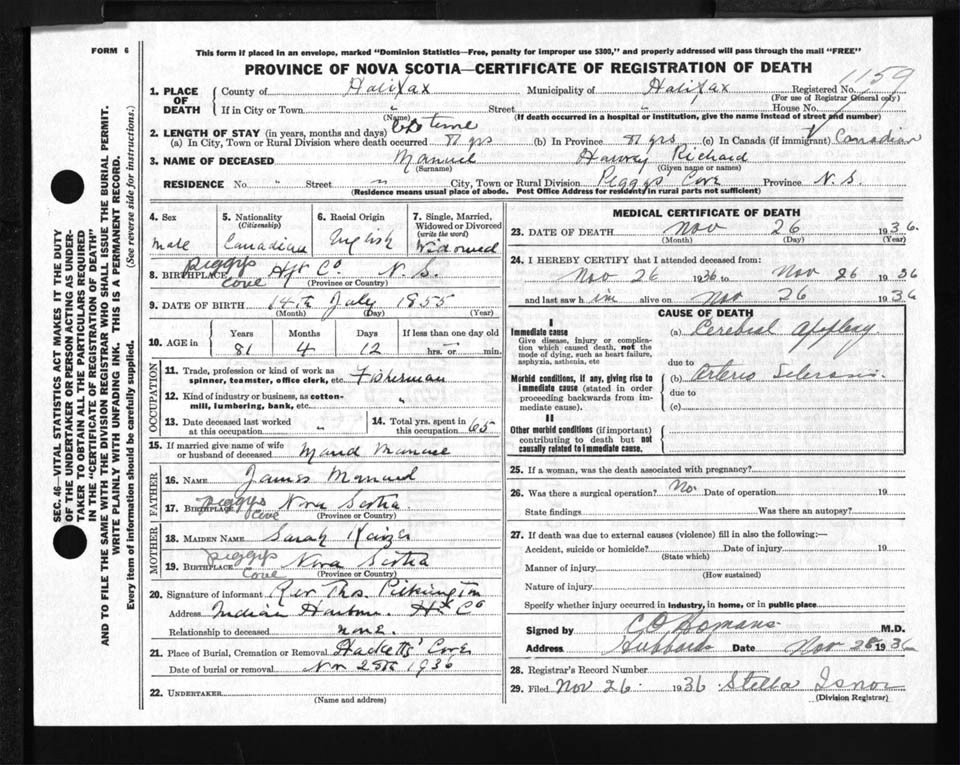 FORM 6
This form if placed in an envelope, marked "Dominion Statistics—Free, penalty for improper use $300," and properly addressed will pass through the mail "FREE"
PROVINCE OF NOVA SCOTIA—CERTIFICATE OF REGISTRATION OF DEATH
1159
1. PLACE OF DEATH County of Halifax Municipality of Halifax Registered No.
(For use of Registrar General only)
If in City or Town " Street " House No.
(Name) (If death occurred in a hospital or institution, give the name instead of street and number)
2. LENGTH OF STAY (in years, months and days) time
(a) In City, Town or Rural Division where death occurred 81 yrs (b) In Province 81 yrs (c) In Canada (if immigrant) Canadian
3. NAME OF DECEASED Manuel Harvey Richard
(Surname) (Given name or names)
RESIDENCE No. " Street " City, Town or Rural Division Peggys Cove Province N.S.
(Residence means usual place of abode. Post Office Address for residents in rural parts not sufficient)
4. Sex 5. Nationality (Citizenship) 6. Racial Origin 7. Single, Married, Widowed or Divorced (write the word)
male Canadian English Widowed
8. BIRTHPLACE Peggys Cove Hfx Co N.S.
(Province or Country)
9. DATE OF BIRTH 14th July 1855
(Month) (Day) (Year)
10. AGE in Years Months Days If less than one day old
81 4 12 hrs. or min.
OCCUPATION
11. Trade, profession or kind of work as spinner, teamster, office clerk, etc. Fisherman
12. Kind of industry or business, as cotton-mill, lumbering, bank, etc. "
13. Date deceased last worked at this occupation " 14. Total yrs. spent in this occupation 65
15. If married give name of wife or husband of deceased Maud Manuel
FATHER
16. NAME James Manuel
17. BIRTHPLACE Peggys Cove Nova Scotia
(Province or Country)
MOTHER
18. MAIDEN NAME Sarah Keizer
19. BIRTHPLACE Peggys Cove Nova Scotia
(Province or Country)
20. Signature of informant Rev Thos. Pilkington
Address Indian Harbour Hfx Co
Relationship to deceased none.
21. Place of Burial, Cremation or Removal Hacketts Cove
Date of burial or removal Nov 28th 1936
22. UNDERTAKER
(Name and address)
MEDICAL CERTIFICATE OF DEATH
23. DATE OF DEATH Nov 26 1936.
(Month) (Day) (Year)
24. I HEREBY CERTIFY that I attended deceased from:
Nov 26 1936 to Nov 26 1936
and last saw him alive on Nov 26 1936
CAUSE OF DEATH
I
Immediate cause
Give disease, injury or complication which caused death, not the mode of dying, such as heart failure, asphyxia, asthenia, etc
(a) Cerebral
due to
Morbid conditions, if any, giving rise to immediate cause (stated in order proceeding backwards from immediate cause).
(b) Arterio Sclerosis.
due to
(c)
II
Other morbid conditions (if important) contributing to death but not causally related to immediate cause.
25. If a woman, was the death associated with pregnancy?
26. Was there a surgical operation? No Date of operation 19
State findings Was there an autopsy?
27. If death was due to external causes (violence) fill in also the following:—
Accident, suicide or homicide? Date of injury 19
(State which)
Manner of injury
(How sustained)
Nature of injury
Specify whether injury occurred in industry, in home, or in public place
Signed by C O Homans M.D.
Address Hubbards Date Nov 28 1936
28. Registrar's Record Number
29. Filed Nov 26 1936 Stella Isnor
(Division Registrar)
SEC. 46—VITAL STATISTICS ACT MAKES IT THE DUTY OF THE UNDERTAKER OR PERSON ACTING AS UNDERTAKER TO OBTAIN ALL THE PARTICULARS REQUIRED IN THE "CERTIFICATE OF REGISTRATION OF DEATH" AND TO FILE THE SAME WITH THE DIVISION REGISTRAR WHO SHALL ISSUE THE BURIAL PERMIT.
WRITE PLAINLY WITH UNFADING INK. THIS IS A PERMANENT RECORD.
Every item of information should be carefully supplied. (See reverse side for instructions.)